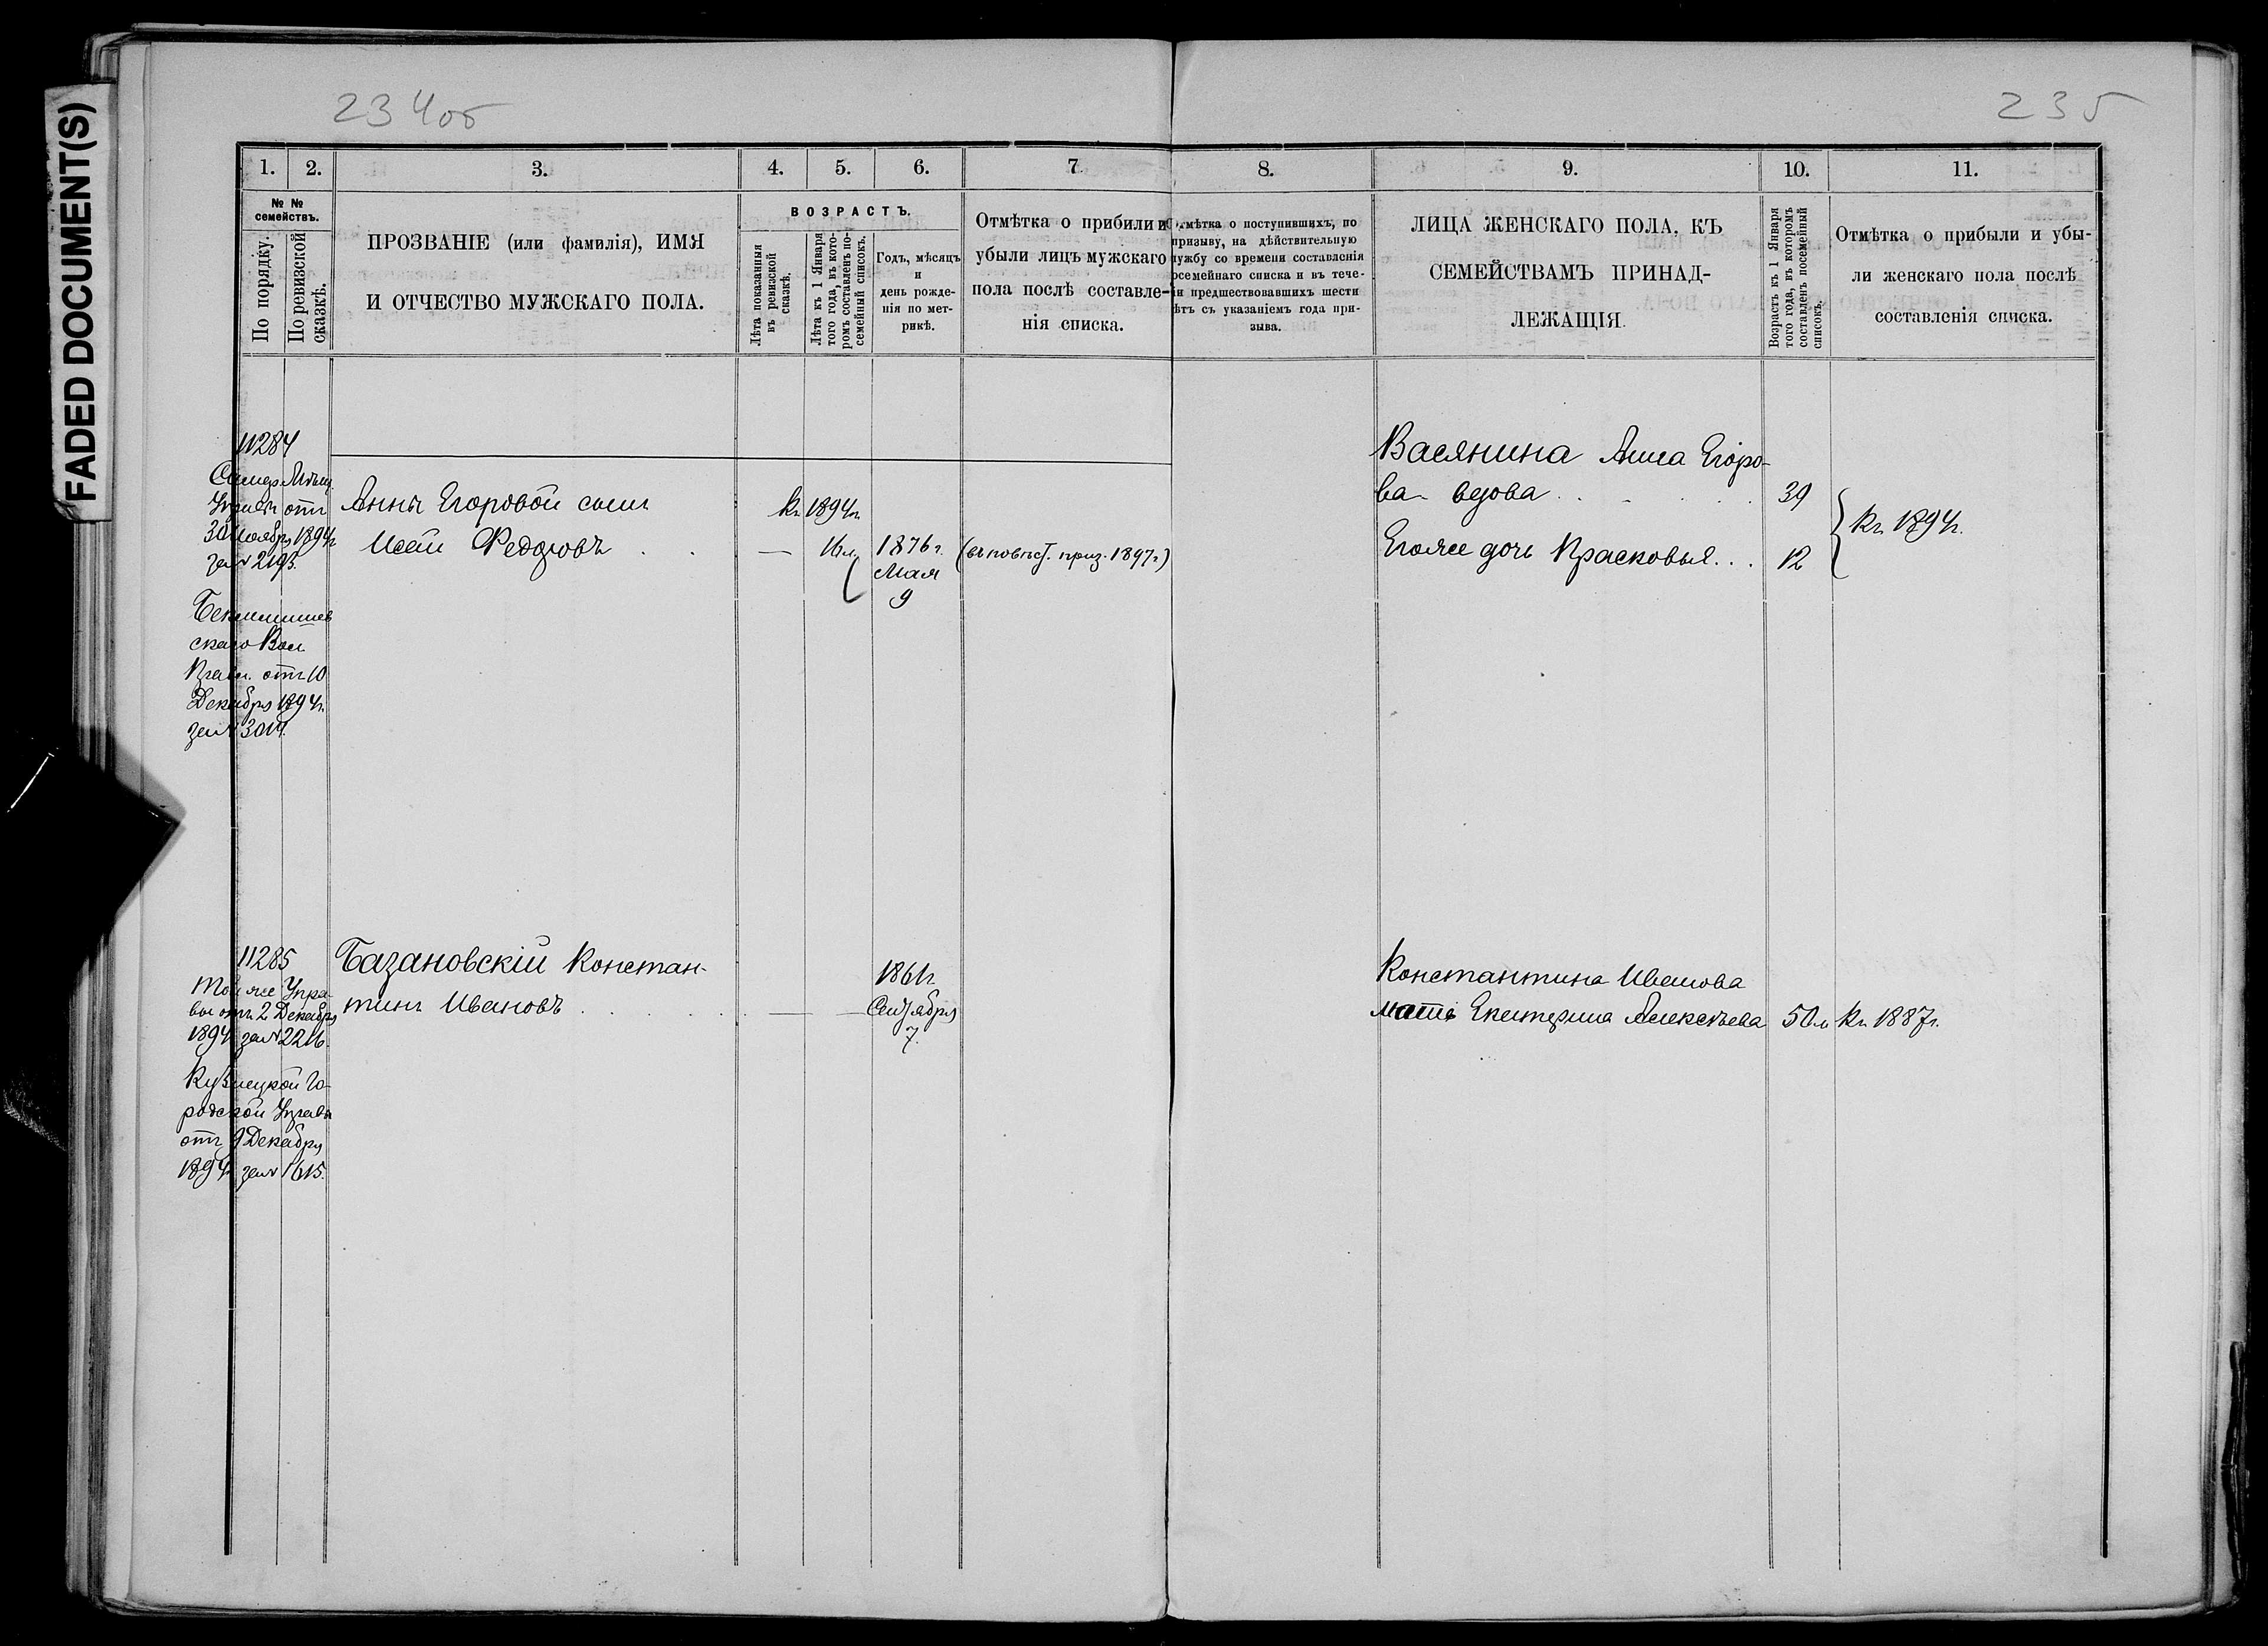 FADED DOCUMENT(S)
234об
235
1. 2. 3. 4. 5. 6. 7 8. 9. 10. 11.
№ №
семействъ.
По порядку.
По ревизской
сказкѣ.
ПРОЗВАНІЕ (или фамилія), ИМЯ
И ОТЧЕСТВО МУЖСКАГО ПОЛА.
ВОЗРАСТЪ.
Лѣта показанныя
въ ревизской
сказкѣ.
Лѣта къ 1 Января
того года, въ кото-
ромъ составленъ по-
семейный списокъ.
Годъ, мѣсяцъ
и
день рожде-
нія по мет-
рикѣ.
Отмѣтка о прибыли и
убыли лицъ мужскаго
пола послѣ составле-
нія списка.
Отмѣтка о поступившихъ, по
призыву, на дѣйствительную
лужбу со времени составленія
осемейнаго списка и въ тече-
и предшествовавшихъ шести
ѣтъ съ указаніемъ года при-
зыва.
ЛИЦА ЖЕНСКАГО ПОЛА, КЪ
СЕМЕЙСТВАМЪ ПРИНАД-
ЛЕЖАЩІЯ.
Возрастъ къ 1 Января
того года, въ которомъ
составленъ посемейный
списокъ.
Отмѣтка о прибыли и убы-
ли женскаго пола послѣ
составленія списка.
11284
отъ
30 Ноября 1894г
за № 2193.
скаго Вол.
Правл. отъ 10
Декабря 1894г.
за №
Анны Егоровой сынъ
Исай Федоровъ . . .
къ 1894г.
— 16л.
1876г.
Мая
9
(въ повѣст. приз. 1897г.)
Васянина Анна Егоро-
ва вдова . . . . 39
Егоже дочь Прасковья . . . 12
къ 1894г.
11285
Той же Упра-
вы отъ 2 Декабря
1894 за № 2216.
Кузнецкой Го-
родской Управы
отъ 9 Декабря
1894г за № 1615.
Базановскій Констан-
тинъ Ивановъ . . . . — —
1861г.
Сентября
7.
Константина Иванова
мать Екатерина Алексѣева 50л къ 1887г.